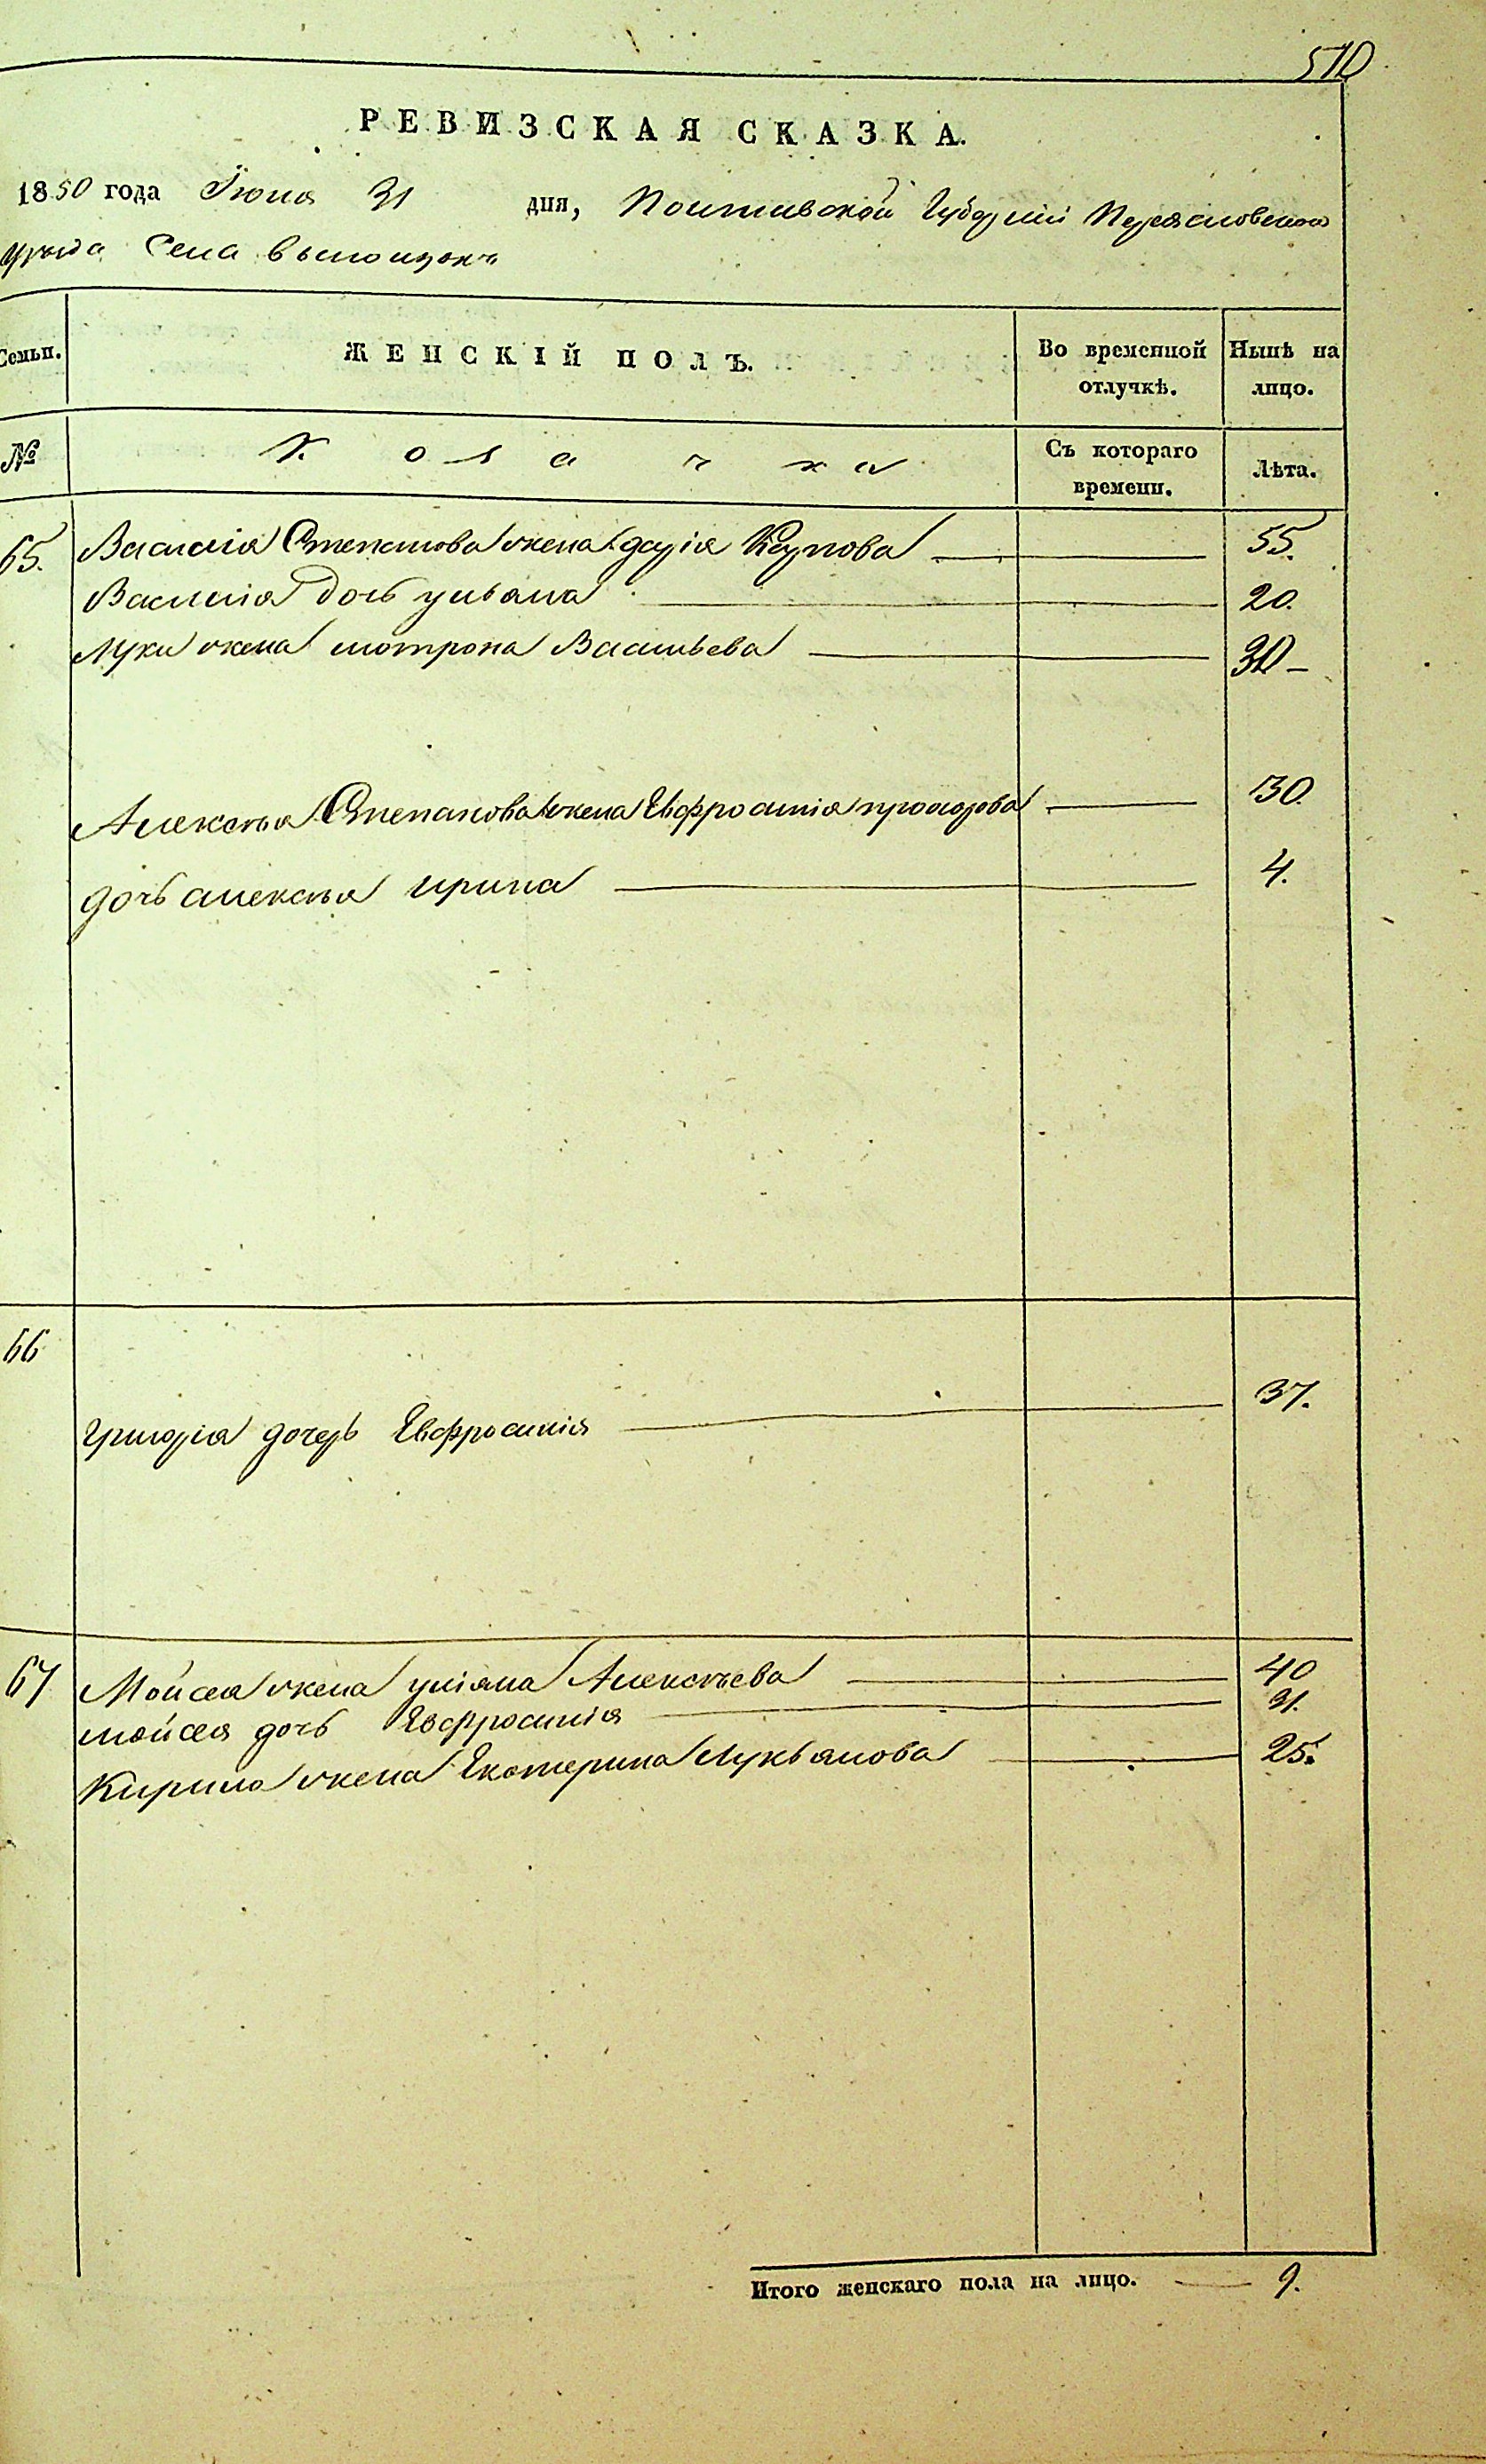 510
РЕВИЗСКАЯ СКАЗКА.
1850 года Июня 31 дня, Полтавской Губернiи Переясловского
уезда Села Выполцокъ
Семьи. ЖЕНСКIЙ ПОЛЪ. Во временной отлучкѣ. Нынѣ на лицо.
№ Козачка Съ котораго времени. Лѣта.
65. Василия Степанова жена дарiя Карпова 55.
Василия дочь ульяна 20.
Луки жена мотрона Васильева 30
Алексѣя Степанова жена Евфросинiя прохорова 30.
дочь алексѣя ирина 4.
66
Григорiя дочерь Евфросинiя 37.
67 Мойсея жена улiяна Алексѣева 40
мойсея дочь Евфросинiя 21.
Кирила жена Екатерина Лукьянова 25.
Итого женскаго пола на лицо. 9.